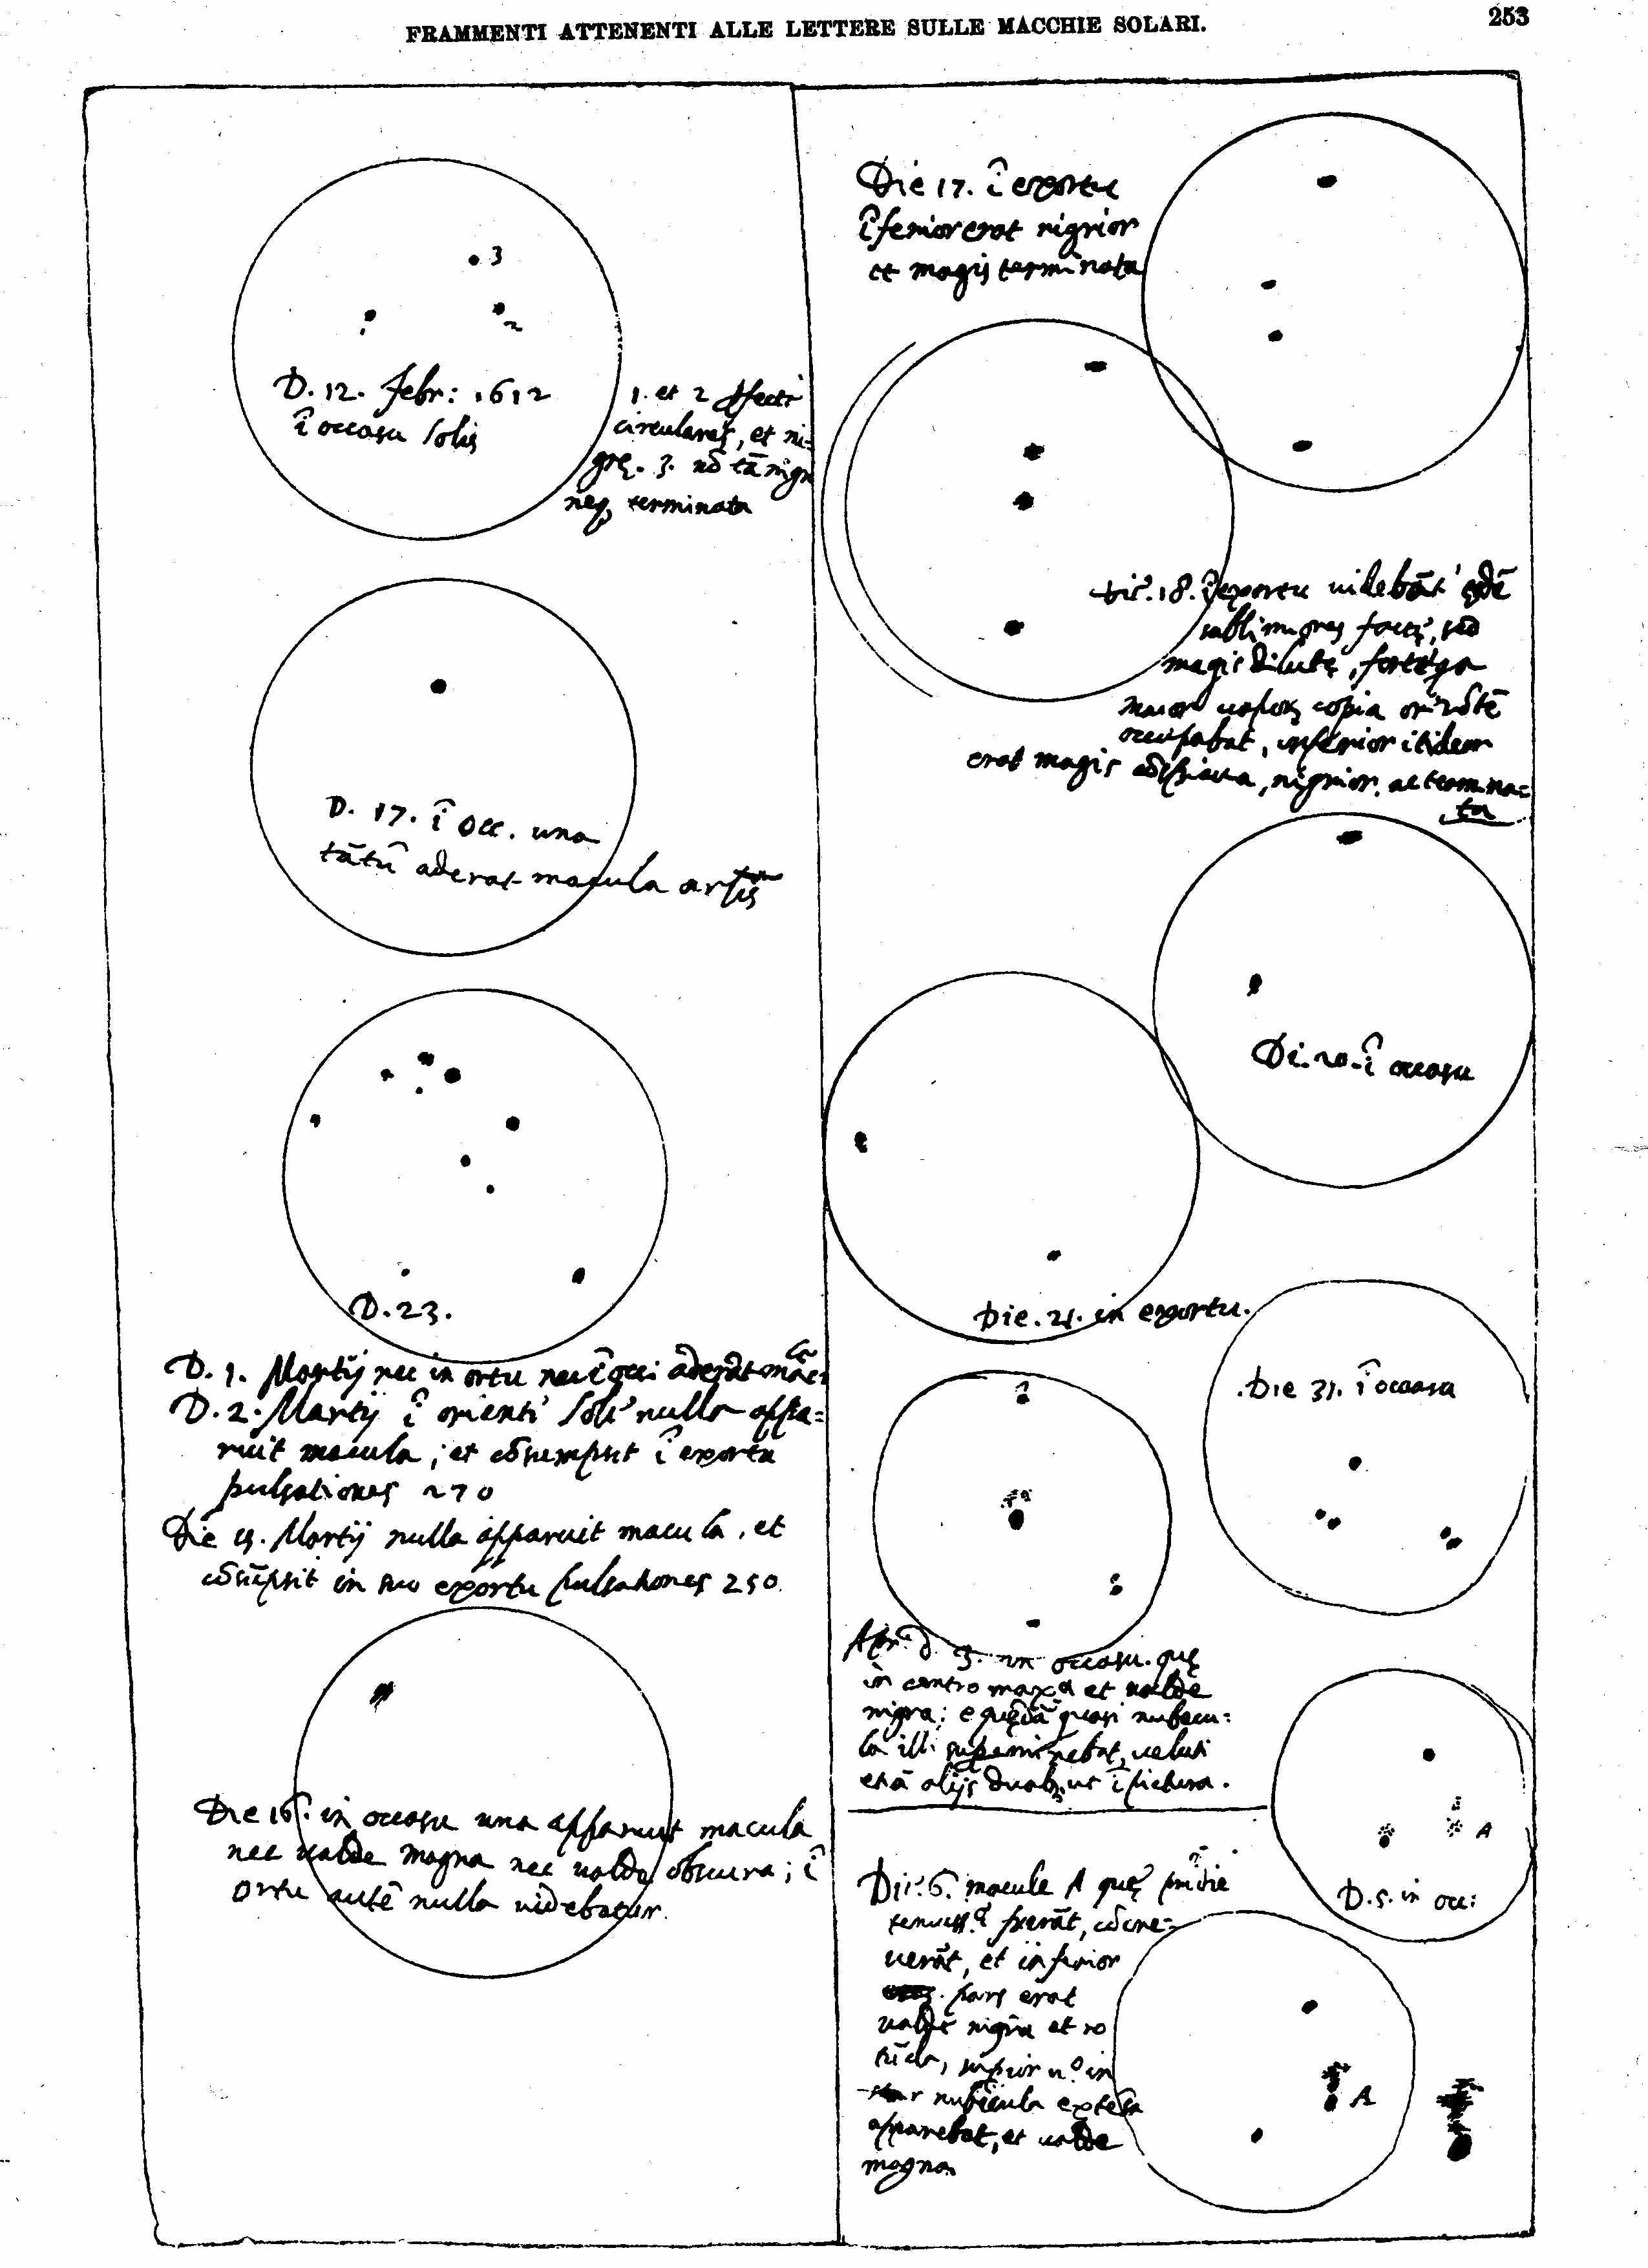 FRAMMENTI ATTENENTI ALLE LETTERE SULLE MACCHIE SOLARI.
253
3
2
D. 12. febr: 1612
î occasu Solis
1. et 2
circulares, et ni-
grę. 3. nō tā nigra
neq, terminata
D. 17. î occ. una
tātū aderat macula
D. 23.
D. 1. Martij nec in ortu nec î
D. 2. Martij î orienti Sole nulla appa=
ruit macula; et cōsumpsit î exortu
pulsationes 270
Die Martij nulla apparuit macula, et
cōsūpsit in suo exortu pulsationes 250.
Die 16. in occasu una apparuit macula
nec valde magna nec valde obscura; î
ortu autē nulla videbatur.
Die 17. î exortu
îferior erat nigrior
et magis terminata
Die. 18. î exortu videbāt
sublimiores factę, sed
magis dilutę,
maior copia
occupabat, inferior itidem
erat magis nigrior, ac termina=
ta
Di. 20. î occasu
Die. 21. in exortu.
Die 31. î occasu
Apr. d. 3. in occasu. quę
in centro et valde
nigra; quasi nubecu=
la illi veluti
etiā alijs duab, ut î pictura.
A
D. 5. in occ:
Die. 6. macule A quę pridie
fuerāt, cōcre=
verāt, et inferior
pars erat
valde nigra et ro
tūda, in
nubecula extēsa
apparebat, et valde
magna.
A